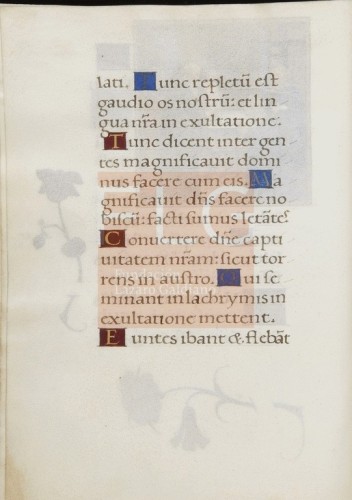 lati. Tunc repletū est
gaudio os nostrū: et lin
gua nr̄a in exultatione.
Tunc dicent inter gen
tes magnificavit domi
nus facere cum eis. Ma
gnificavit dn̄s facere no
biscū: facti sumus letātes
Convertere dn̄e capti
vitatem nr̄am: sicut tor
rens in austro. Qui se
minant in lachrymis in
exultatione mettent.
Euntes ibant & flebāt
FLG
Fundación
Lázaro Galdiano